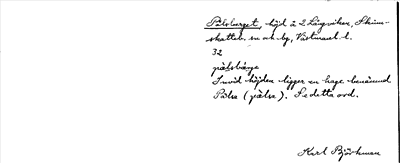 Pålsberget, höjd å 2 Långviken, Skinn-
skatteb. sn och bg, Västmanl. l.
32
pålsbärge
Invid höjden ligger en hage benämnd
Pålsa (pålsa). Se detta ord.
Karl Björkman